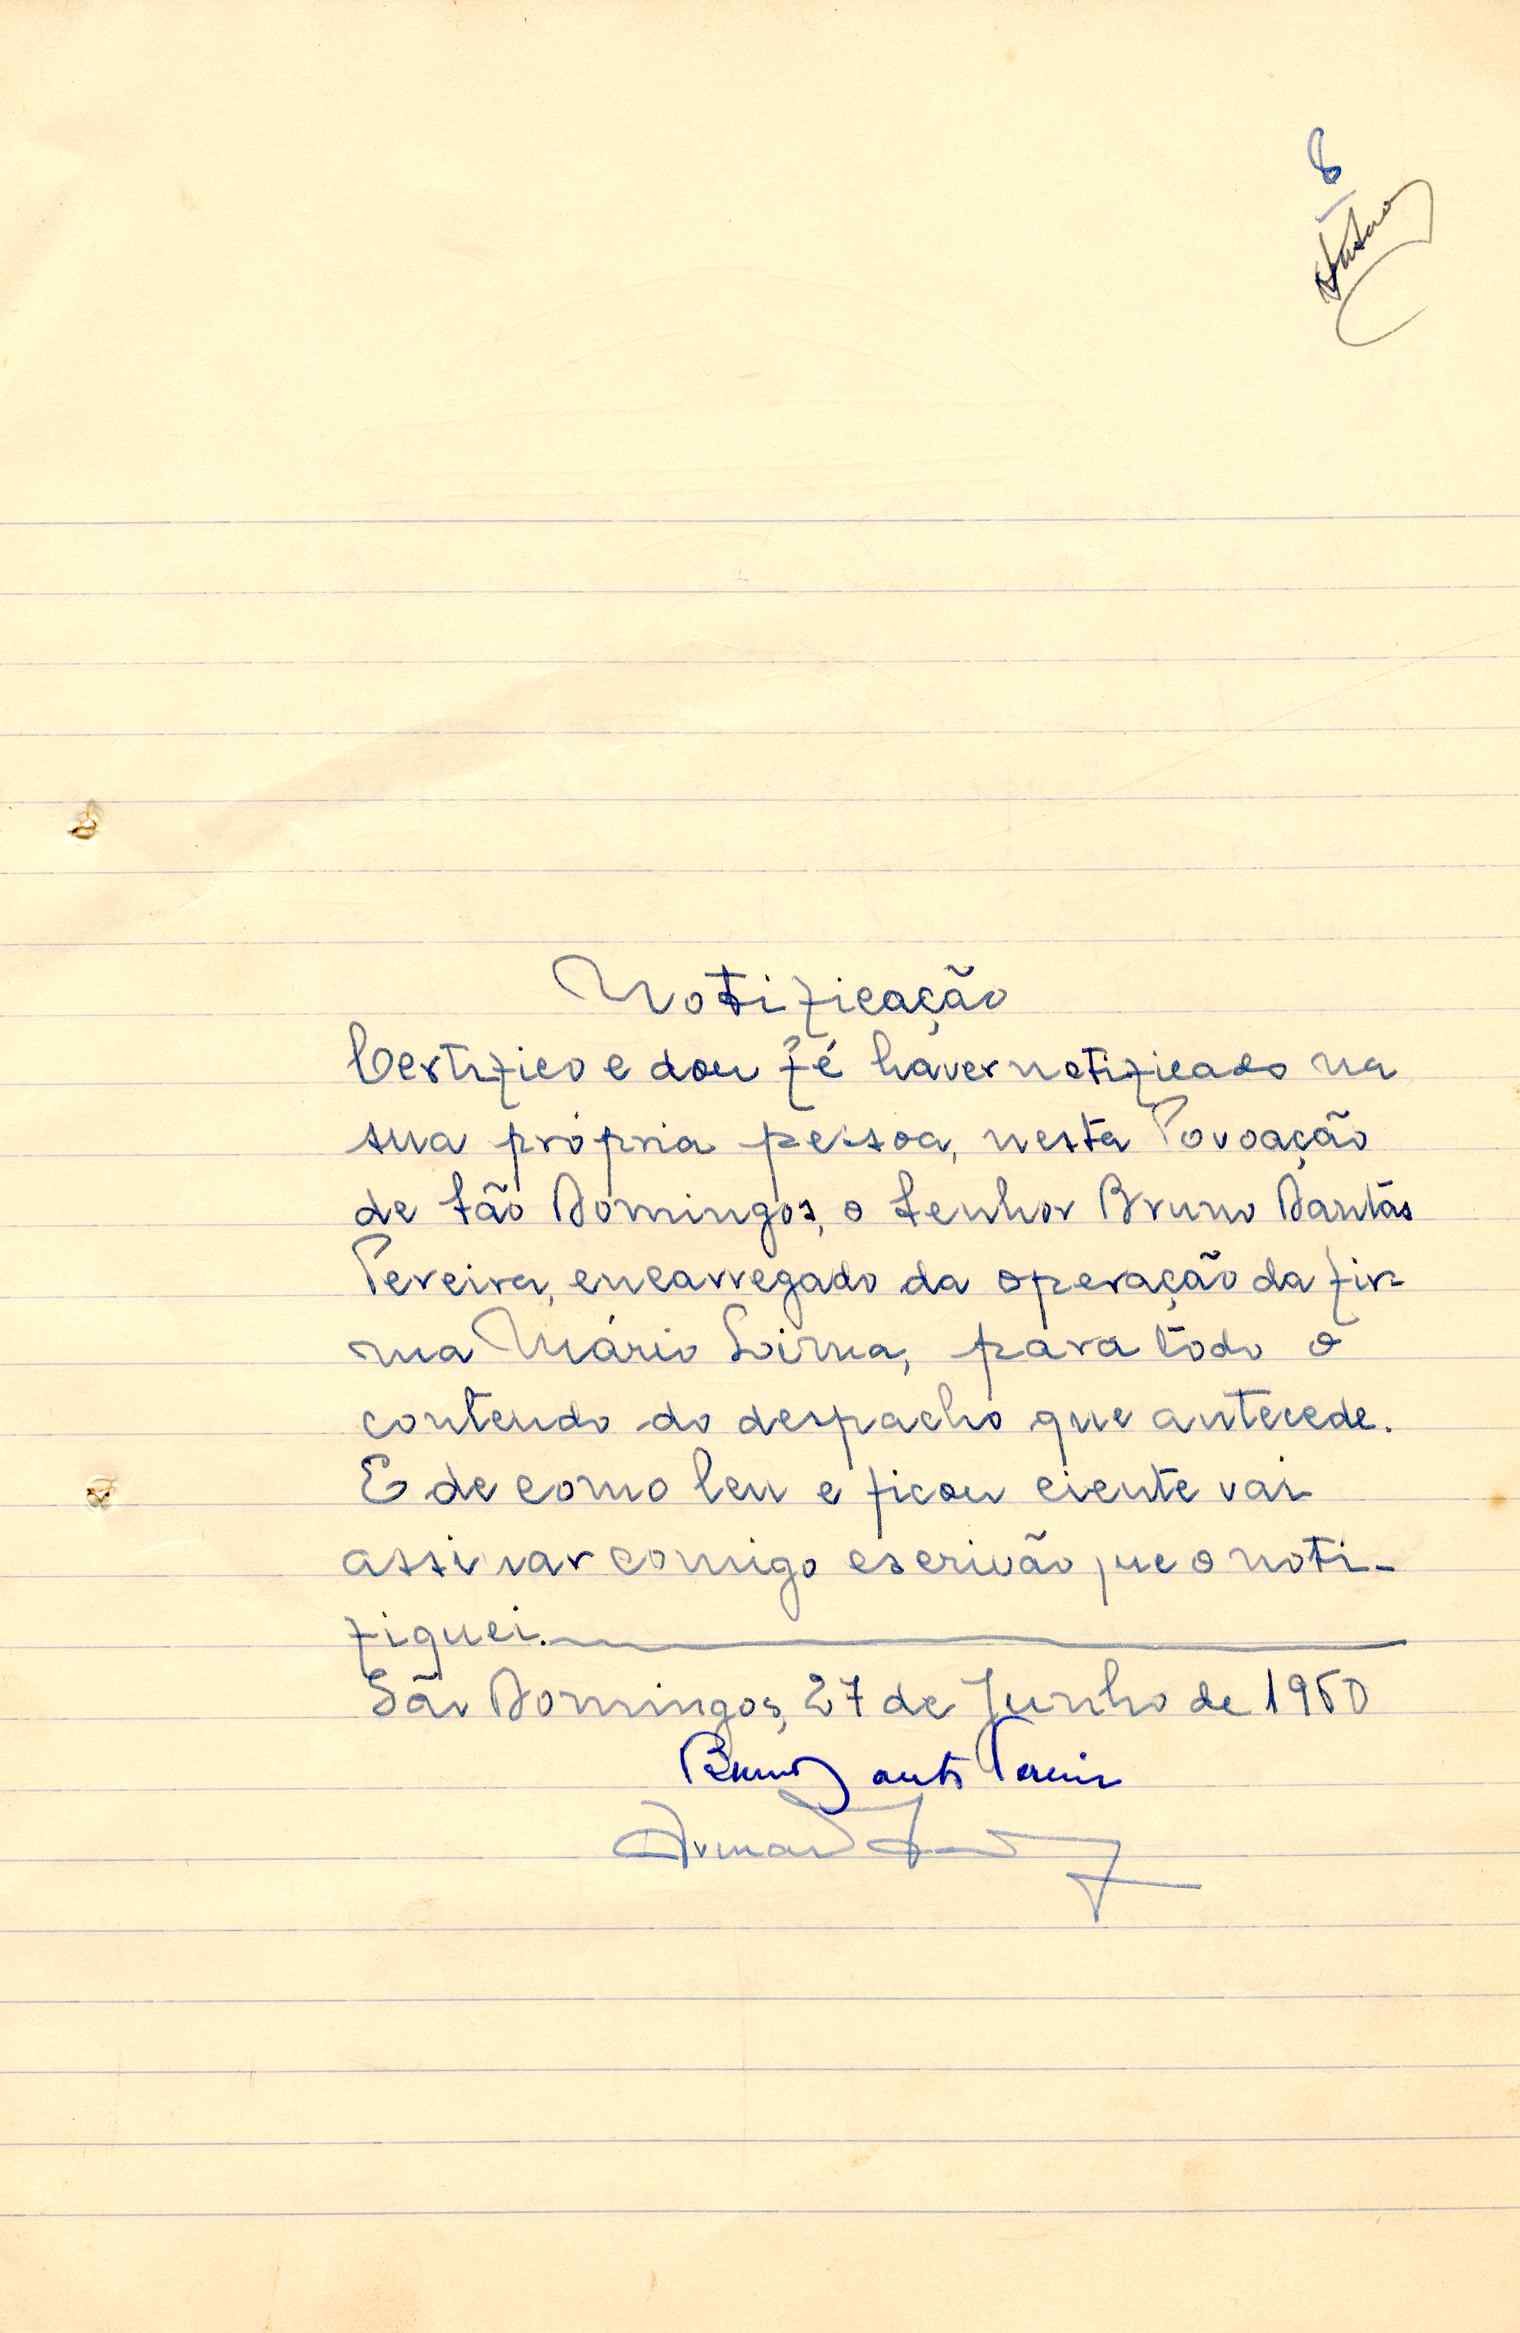 8
Notificação
Certifico e dou fé haver notificado na
sua própria pessoa, nesta Povoação
de São Domingos, o Senhor Bruno Dantas
Pereira, encarregado da operação da fir-
ma Mário Lima, para todo o
contendo do despacho que antecede.
E de como leu e ficou ciente vai
assinar comigo escrivão que o noti-
fiquei.
São Domingos, 27 de Junho de 1960
Bruno Dantas Pereira